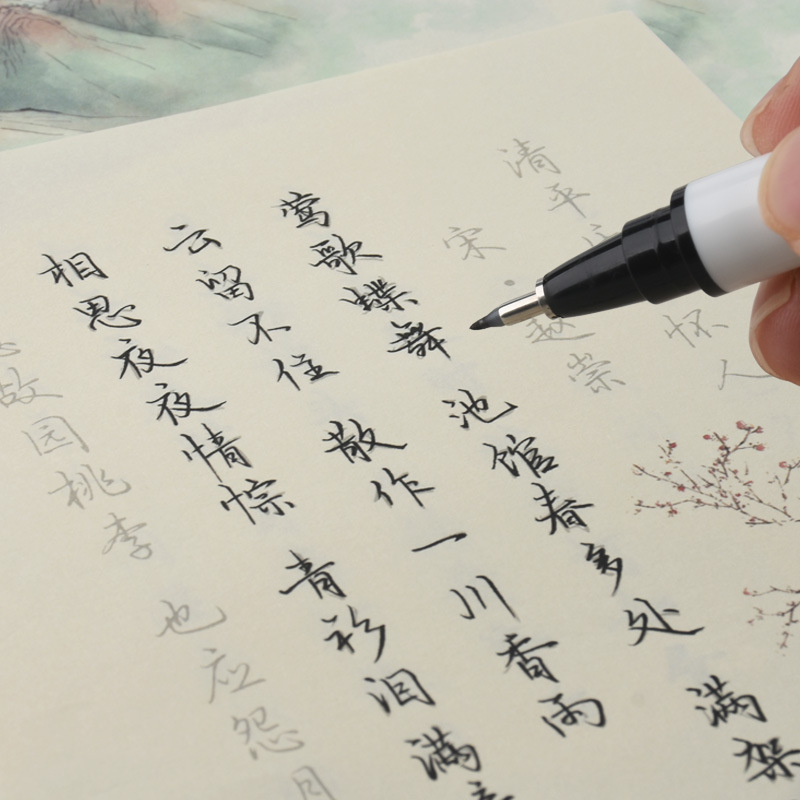 清平 怀人
宋·赵崇
莺歌蝶舞 池馆春多处 满架
云留不住 散作一川香雨
相思夜夜情悰 青衫泪满
故园桃李 也应怨月